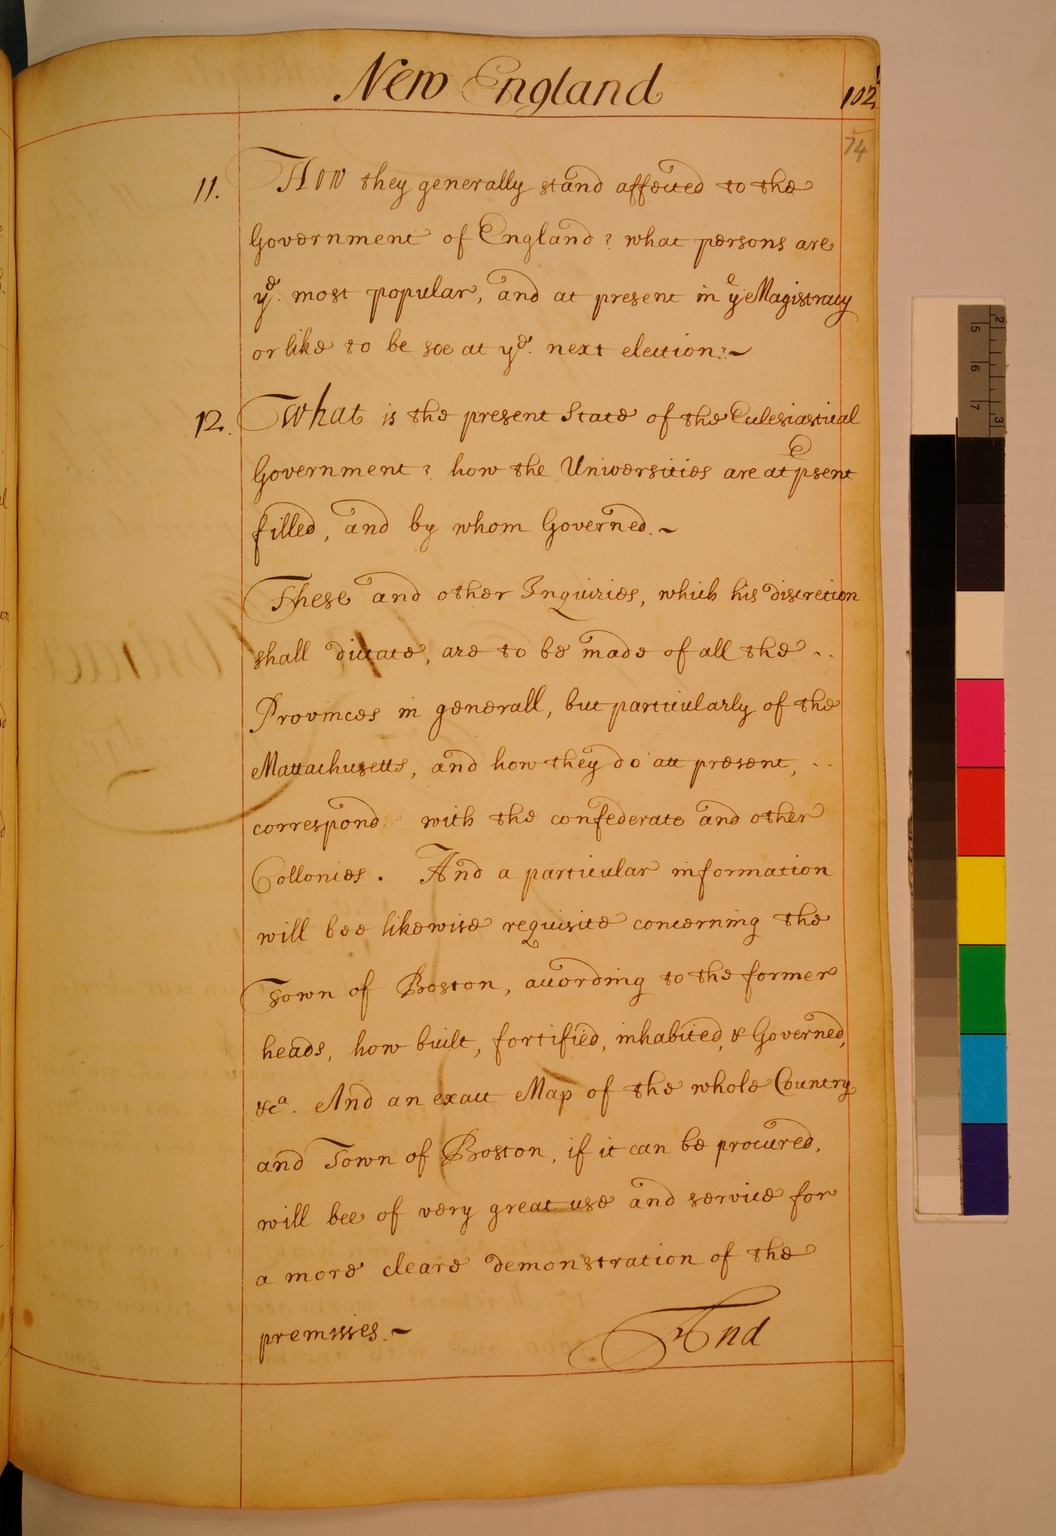 New England
102
74
11. How they generally stand affected to the
Government of England? what persons are
ye. most popular, and at present in ye Magistracy
or like to be soe at ye. next election?~
12. What is the present State of the Ecclesiastical
Government? how the Universities are at psent
filled, and by whom Governed.~
These and other Inquiries, which his discretion
shall dictate, are to be made of all the ..
Provinces in generall, but particularly of the
Mattachusetts, and how they do att present, ..
correspond with the confederate and other
Collonies. And a particular information
will bee likewise requisite concerning the
Town of Boston, according to the former
heads, how built, fortified, inhabited, & Governed,
&ca. And an exact Map of the whole Country
and Town of Boston, if it can be procured,
will bee of very great use and service for
a more cleare demonstration of the
premisses.~
And